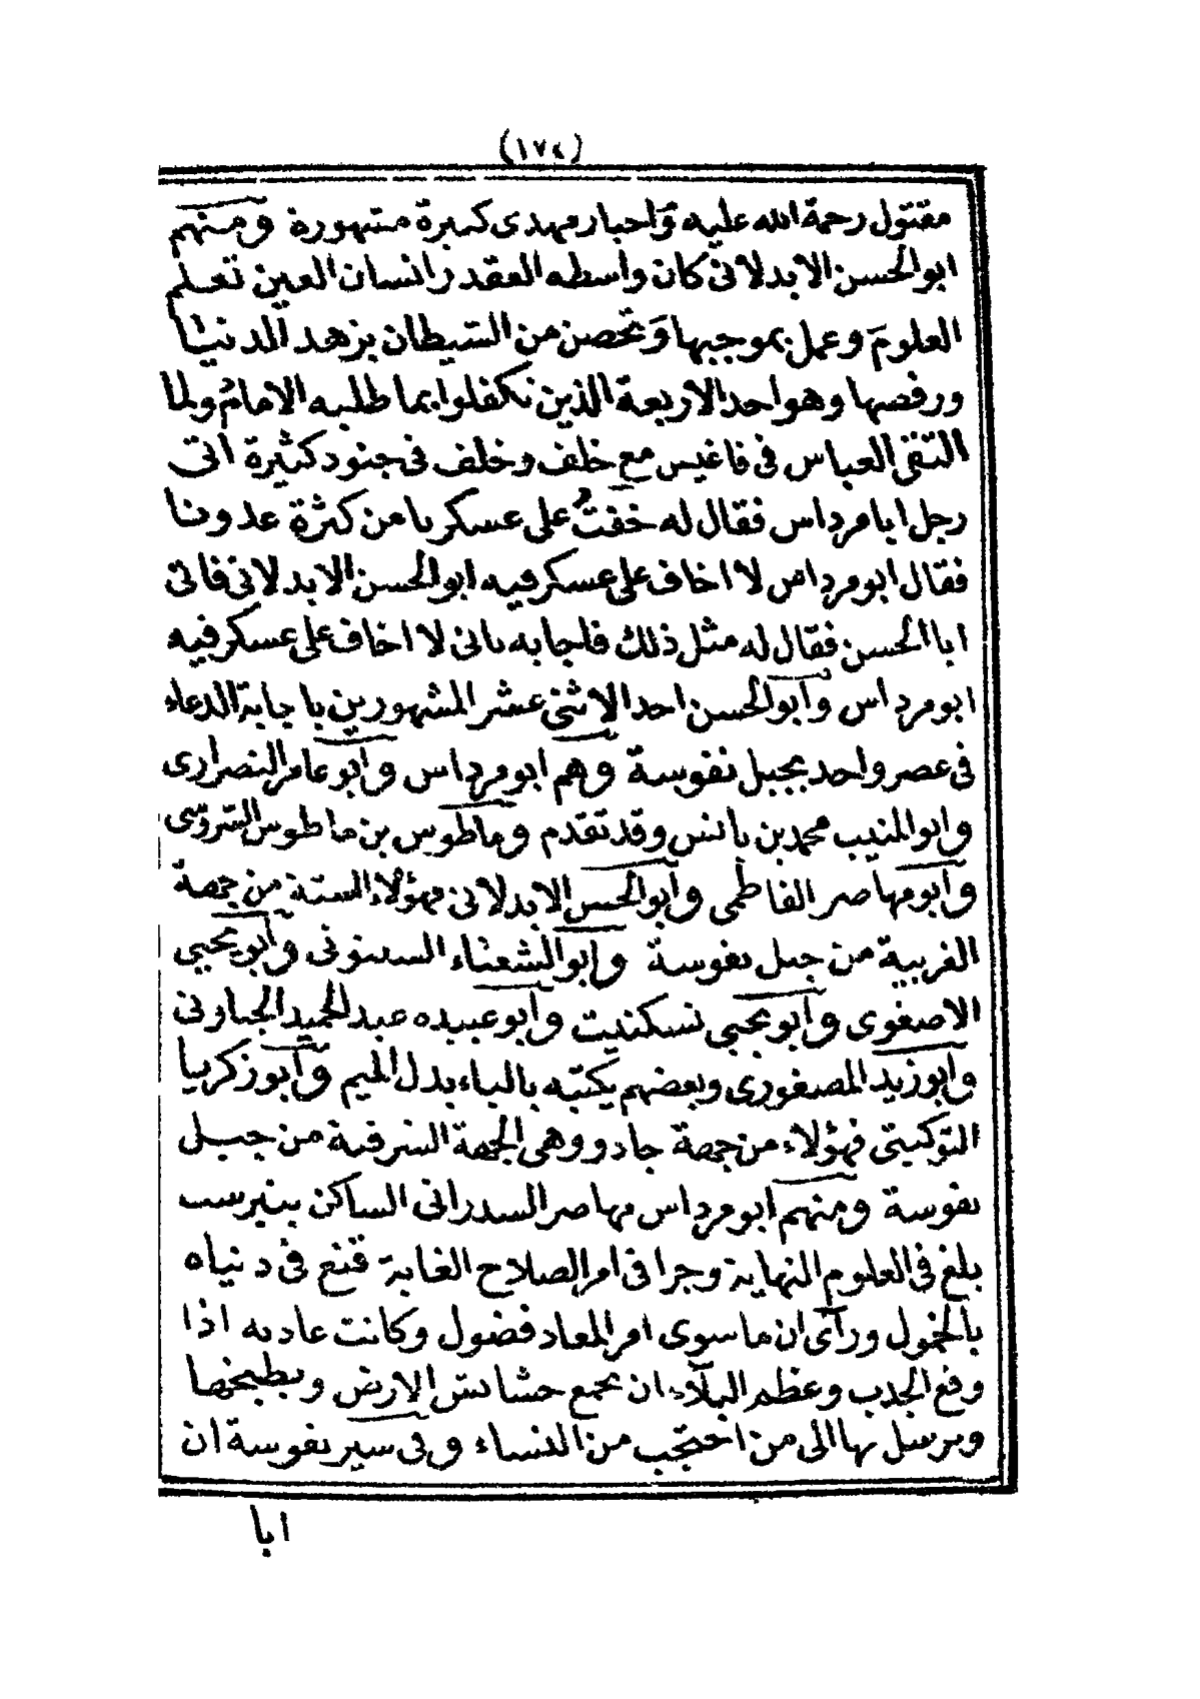 (١٧٤)
مقتول رحمة الله عليه وَاخبار مهدى كثيرة مشهورة ومنهم
ابوالحسن الابدلانى كان واسطه العقد وانسان العين تعلم
العلومَ وعمل بموجبها وَتحصن من الشيطان بزهد الدنيا
ورفضها وهو احد الاربعة الذين تكفلوا بما طلبه الامامُ ولما
التقى العباس فى فاغيس مع خلف وخلف فى جنود كثيرة اتى
رجل ابا مرداس فقال له خفتُ على عسكرنا من كثرة عدونا
فقال ابومرداس لا اخاف على عسكر فيه ابوالحسن الابدلانى فاتى
اباالحسن فقال له مثل ذلك فاجابه بانى لا اخاف على عسكر فيه
ابومرداس وأبوالحسن احد الاثنى عشر المشهورين باجابة الدعاء
فى عصر واحد بجبل نفوسة وهم ابومرداس وابوعامر التصرارى
وابوالمنيب محمد بن يانس وقد تقدم وماطوس بن ماطوس الشروسى
وأبومهاصر الفاطمى وأبوالحسن الابدلانى فهؤلاء الستة من جهة
الغربية من جبل نفوسة وابوالشعثاء السنتوتى وأبويحيى
الاصغوى وأبويحيى تسكنيت وأبوعبيده عبدالحميد الجناونى
وابوزيد المصغورى وبعضهم يكتبه بالباء بدل الميم وأبوزكريا
التوكيتى فهؤلاء من جهة جادو وهى الجهة الشرقية من جبل
نفوسة ومنهم ابومرداس مهاصر السدراتى الساكن بتبرست
بلغ فى العلوم النهاية وجرا فى امر الصلاح الغاية قنع فى دنياه
بالخمول ورآى ان ماسوى امر المعاد فضول وكانت عادته اذا
وقع الجدب وعظم البلآء ان يجمع حشائش الارض ويطبخها
ويرسل بها الى من احتجب من النساء وفى سير نفوسة ان
ابا